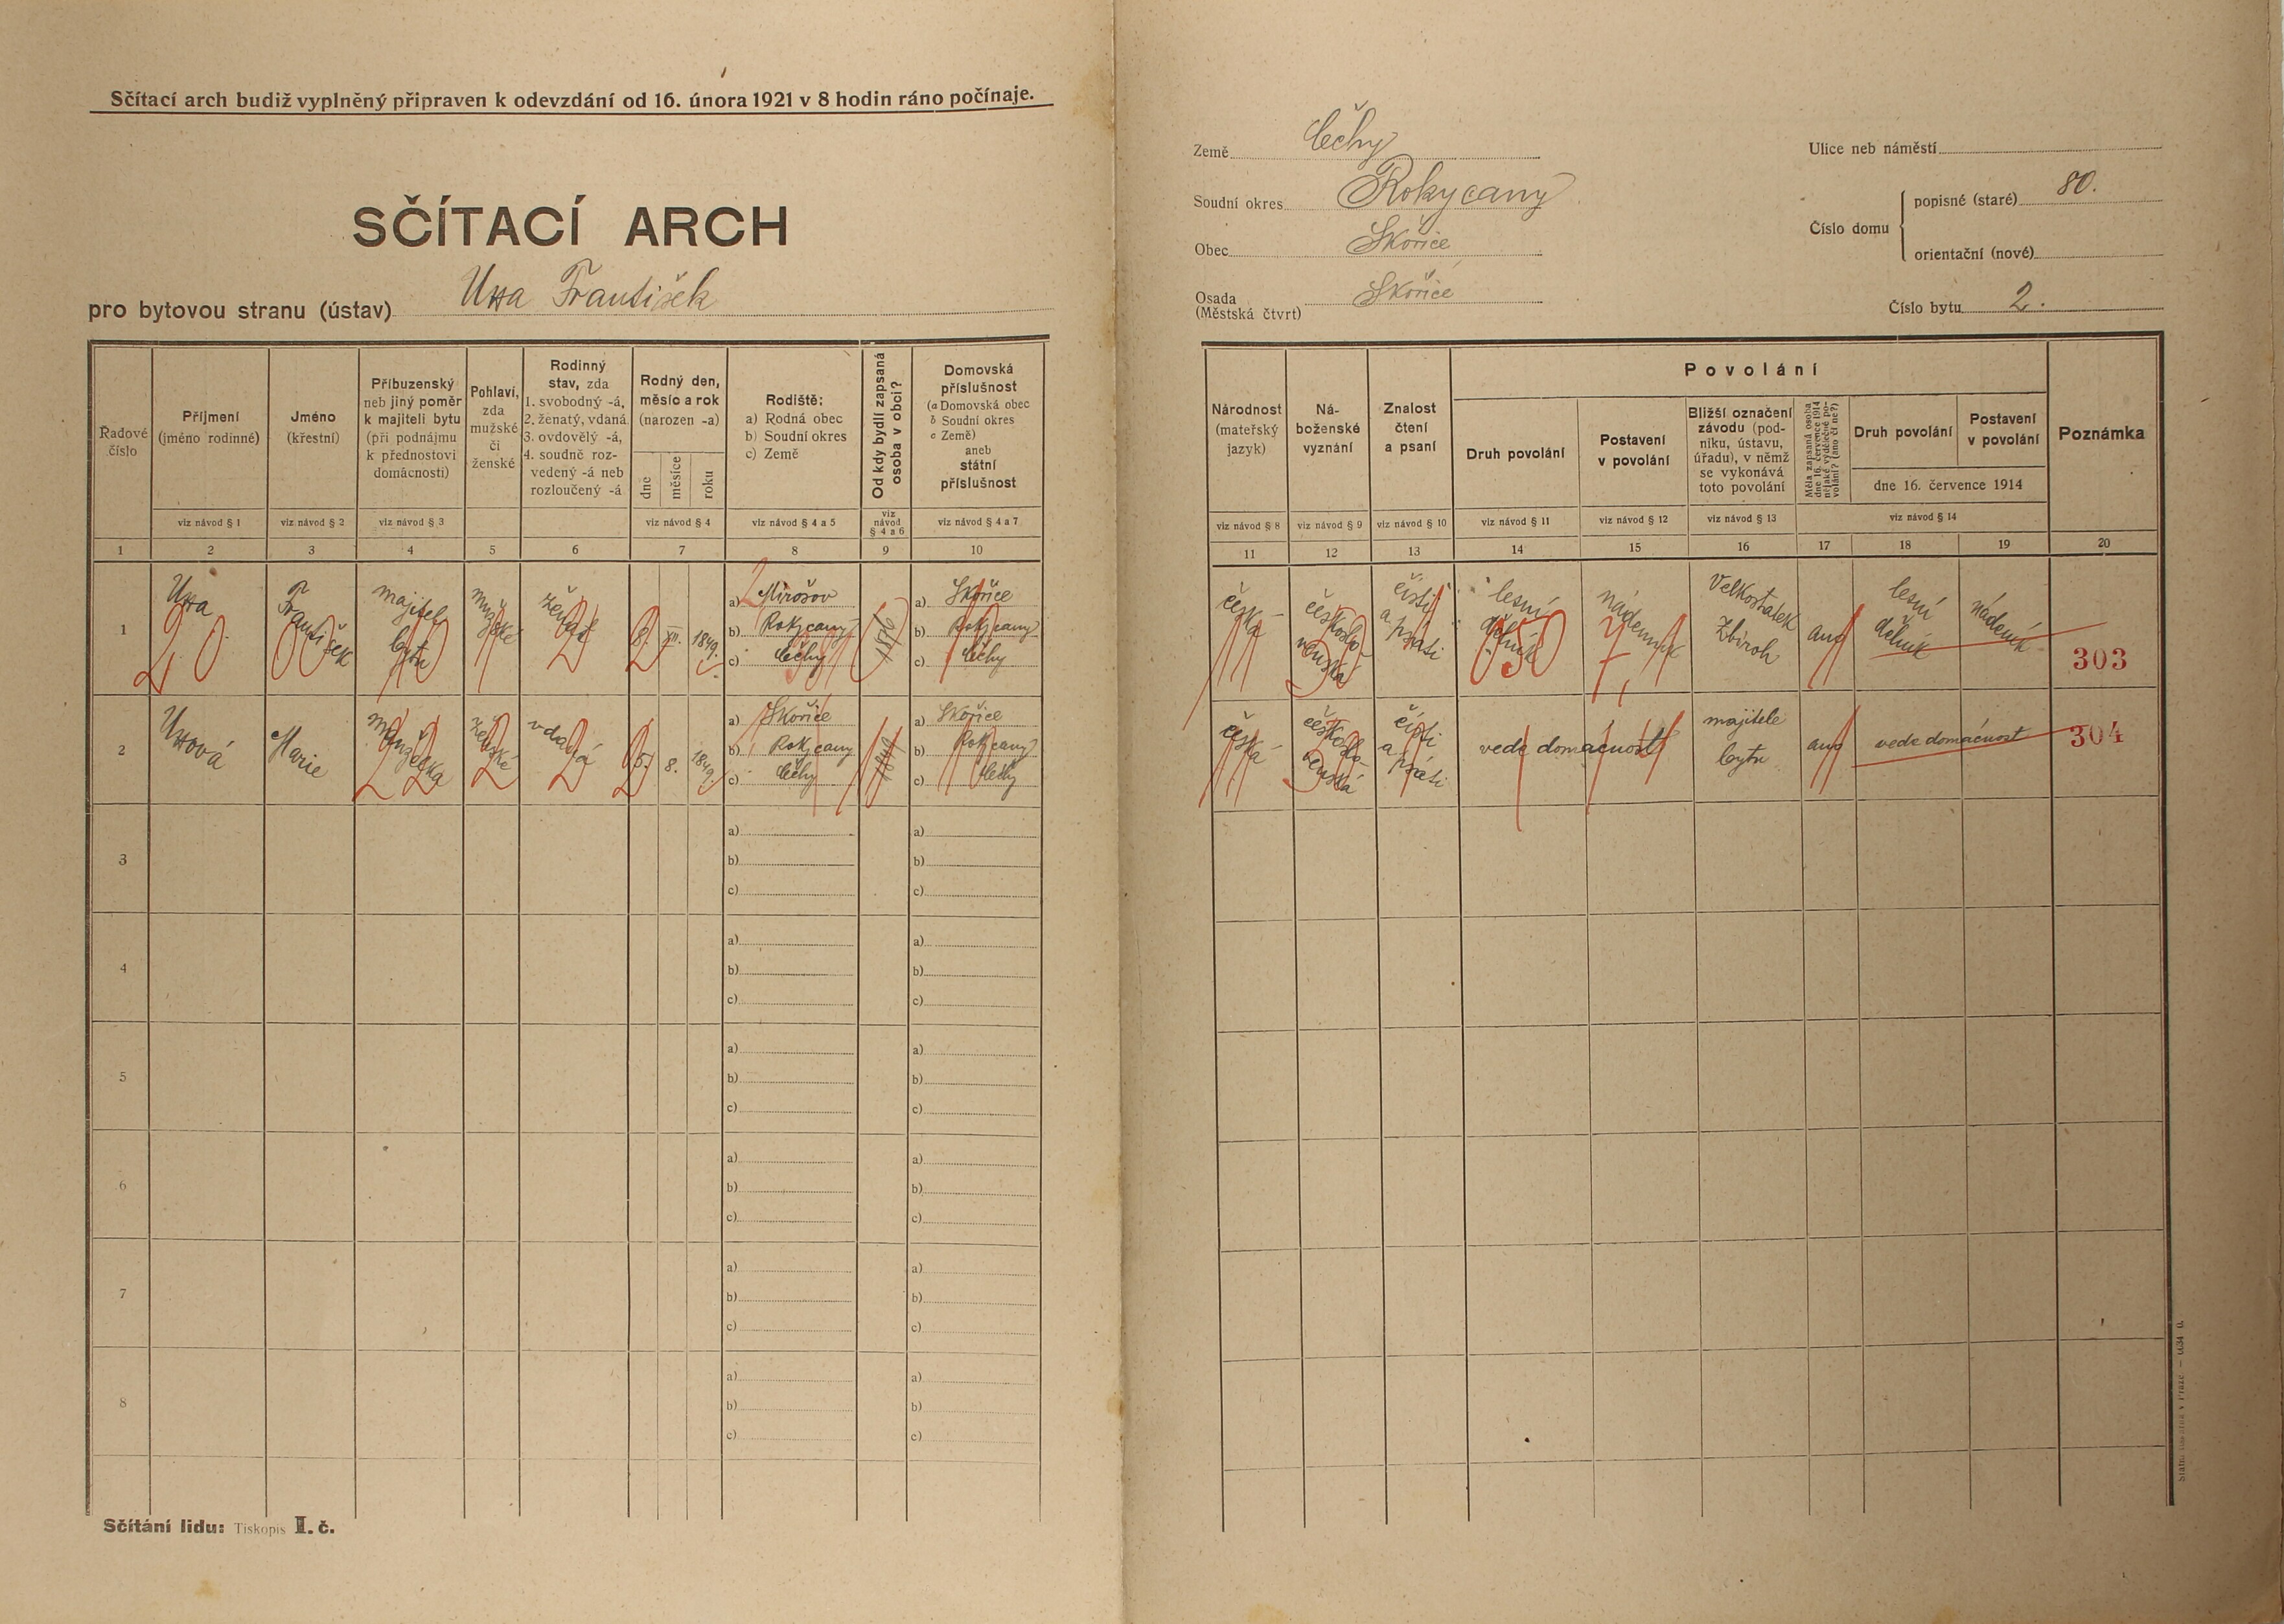 Sčítací arch budiž vyplněný připraven k odevzdání od 16. února 1921 v 8 hodin ráno počínaje.
SČÍTACÍ ARCH
pro bytovou stranu (ústav) František
Země Čechy
Soudní okres Rokycany
Obec Skořice
Osada Skořice
(Městská čtvrt)
Ulice neb náměstí
Číslo domu
popisné (staré) 80.
orientační (nové)
Číslo bytu 2.
Řadové číslo
Příjmení (jméno rodinné)
Jméno (křestní)
Příbuzenský neb jiný poměr k majiteli bytu (při podnájmu k přednostovi domácnosti)
Pohlaví, zda mužské či ženské
Rodinný stav, zda 1. svobodný -á, 2. ženatý, vdaná 3. ovdovělý -á, 4. soudně rozvedený -á neb rozloučený -á
Rodný den, měsíc a rok (narozen -a)
dne měsíce roku
Rodiště: a) Rodná obec b) Soudní okres c) Země
Od kdy bydlí zapsaná osoba v obci?
Domovská příslušnost (a Domovská obec b Soudní okres c Země) aneb státní příslušnost
Národnost (mateřský jazyk)
Náboženské vyznání
Znalost čtení a psaní
Povolání
Druh povolání
Postavení v povolání
Bližší označení závodu (podniku, ústavu, úřadu), v němž se vykonává toto povolání
Měla zapsaná osoba dne 16. července 1914 nějaké výdělečné povolání? (ano či ne?)
Druh povolání
Postavení v povolání
dne 16. července 1914
Poznámka
viz návod § 1 viz návod § 2 viz návod § 3 viz návod § 4 viz návod § 4 a 5 viz návod § 4 a 6 viz návod § 4 a 7
viz návod § 8 viz návod § 9 viz návod § 10 viz návod § 11 viz návod § 12 viz návod § 13 viz návod § 14
1 2 3 4 5 6 7 8 9 10
11 12 13 14 15 16 17 18 19 20
1 František majitel bytu mužské ženat 8. XII. 1849.
a) Mirošov
b) Rokycany
c) Čechy
1876
a) Skořice
b) Rokycany
c) Čechy
česká československá čísti a psáti lesní dělník nádenník Velkostatek Zbiroh ano lesní dělník nádeník 303
2 Marie manželka ženské vdaná 15. 8. 1849.
a) Skořice
b) Rokycany
c) Čechy
1849
a) Skořice
b) Rokycany
c) Čechy
česká československá čísti a psáti vede domácnost majitele bytu ano vede domácnost 304
3
a)
b)
c)
a)
b)
c)
4
a)
b)
c)
a)
b)
c)
5
a)
b)
c)
a)
b)
c)
6
a)
b)
c)
a)
b)
c)
7
a)
b)
c)
a)
b)
c)
8
a)
b)
c)
a)
b)
c)
Sčítání lidu: Tiskopis I. č.